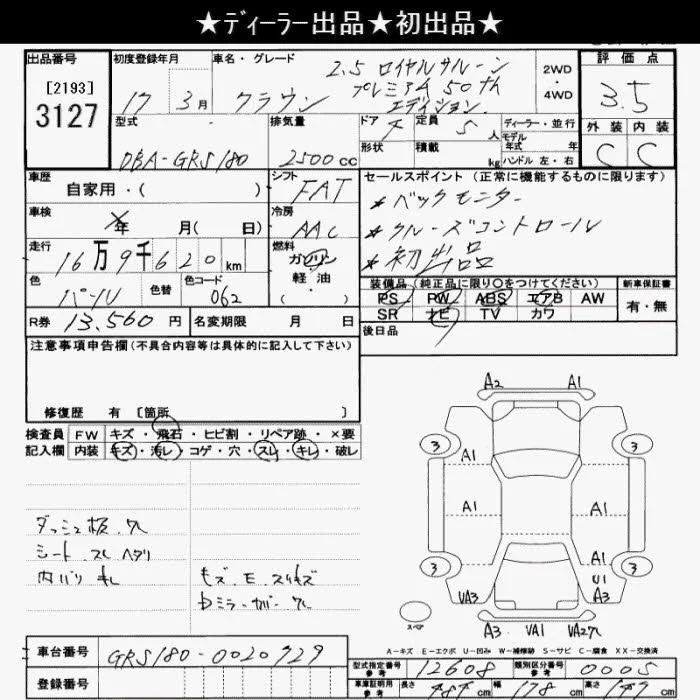 ★ディーラー出品★初出品★
出品番号
[2193]
3127
初度登録年月
17 3月
車名・グレード
クラウン
2.5 ロイヤルサルーン
プレミアム 50th
エディション
2WD
・
4WD
評価点
3.5
外装 内装
C C
型式
DBA-GRS180
排気量
2500cc
ドア 4
定員 5人
形状
積載 kg
ディーラー・並行
モデル年式 年
ハンドル 左・右
車歴
自家用・( )
シフト
FAT
車検
年 月( 日)
冷房
AAC
走行
16万9千620km
燃料
ガソリン
軽油
・
色
パール
色替
色コード
062
R券 13,560円
名変期限 月 日
セールスポイント(正常に機能するものに限ります)
*バックモニター
*クルーズコントロール
*初出品
装備品(純正品に限り○をつけてください)
PS PW ABS エアB AW
SR ナビ TV カワ
新車保証書
有・無
後日品
注意事項申告欄(不具合内容等は具体的に記入して下さい)
修復歴 有 [箇所 ]
検査員記入欄
FW キズ・飛石・ヒビ割・リペア跡・×要
内装 キズ・汚レ・コゲ・穴・スレ・キレ・破レ
ダッシュ板 穴
シート スレ ヘタリ
内バリ キレ
キズ E スリキズ
ミラーカバー
A2 A1
3 3
A1
A1 A1
A1
U1
3 3
VA3 A3
スペア
A3 VA1 VA2穴
A-キズ E-エクボ U-凹み W-補修跡 S-サビ C-腐食 XX-交換済
車台番号
GRS180-0020729
登録番号
型式指定番号 参考 12608
類別区分番号 参考 0005
車庫証明用 参考 長さ 484cm 幅 178cm 高さ cm